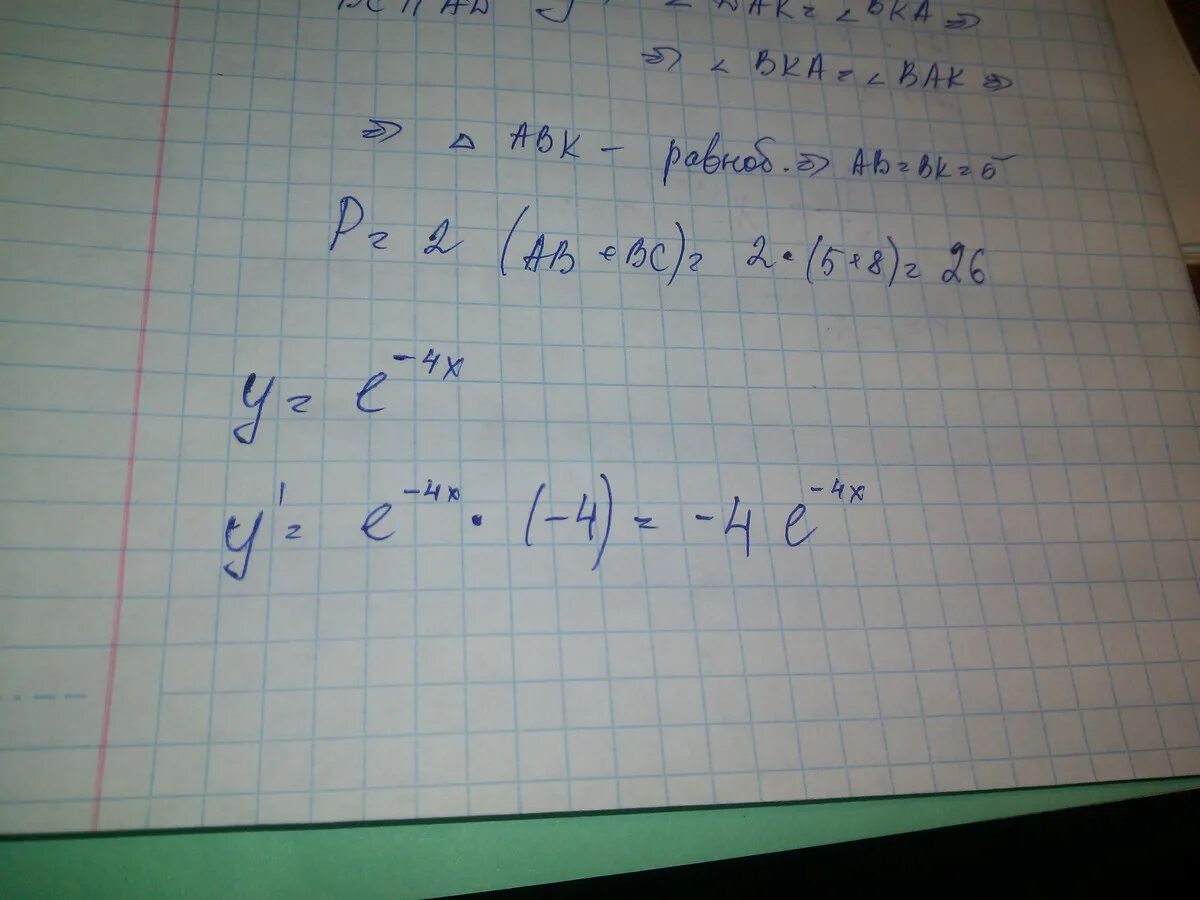 BC || AD ∠DAK = ∠BKA ⇒
⇒ ∠BKA = ∠BAK ⇒
⇒ △ ABK – равноб. ⇒ AB = BK = 5
P = 2 (AB + BC) = 2 · (5 + 8) = 26
y = e^{-4x}
y' = e^{-4x} · (-4) = -4 e^{-4x}